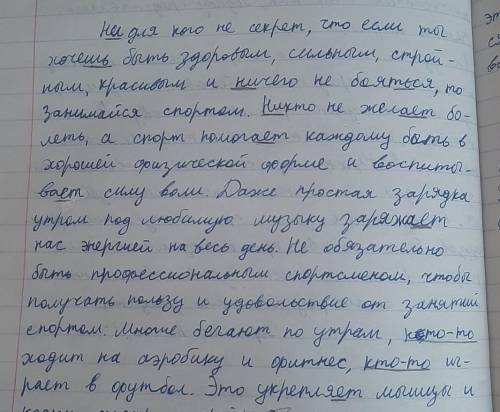 Ни для кого не секрет, что если ты
хочешь быть здоровым, сильным, строй-
ным, красивым и ничего не бояться, то
занимайся спортом. Никто не желает бо-
леть, а спорт помогает каждому быть в
хорошей физической форме и воспиты-
вает силу воли. Даже простая зарядка
утром под любимую музыку заряжает
нас энергией на весь день. Не обязательно
быть профессиональным спортсменом, чтобы
получать пользу и удовольствие от занятий
спортом. Многие бегают по утрам, кто-то
ходит на аэробику и фитнес, кто-то иг-
рает в футбол. Это укрепляет мышцы и